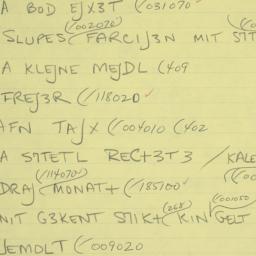 A BOD EJX3T (/031070
(/002070
SLUPES FARCIJ3N MIT S7T
A KLEJNE MEJDL (/409
FREJ3R (/118020
AFN TAJX (/004010 (/402
A S7TETL REC+3T3 / KALE
(/114070 (/00
DRAJ MONAT+ (/185100
(268 (/001050
NIT G3KENT S7IK+ KIN GELT
JEMOLT (/009020